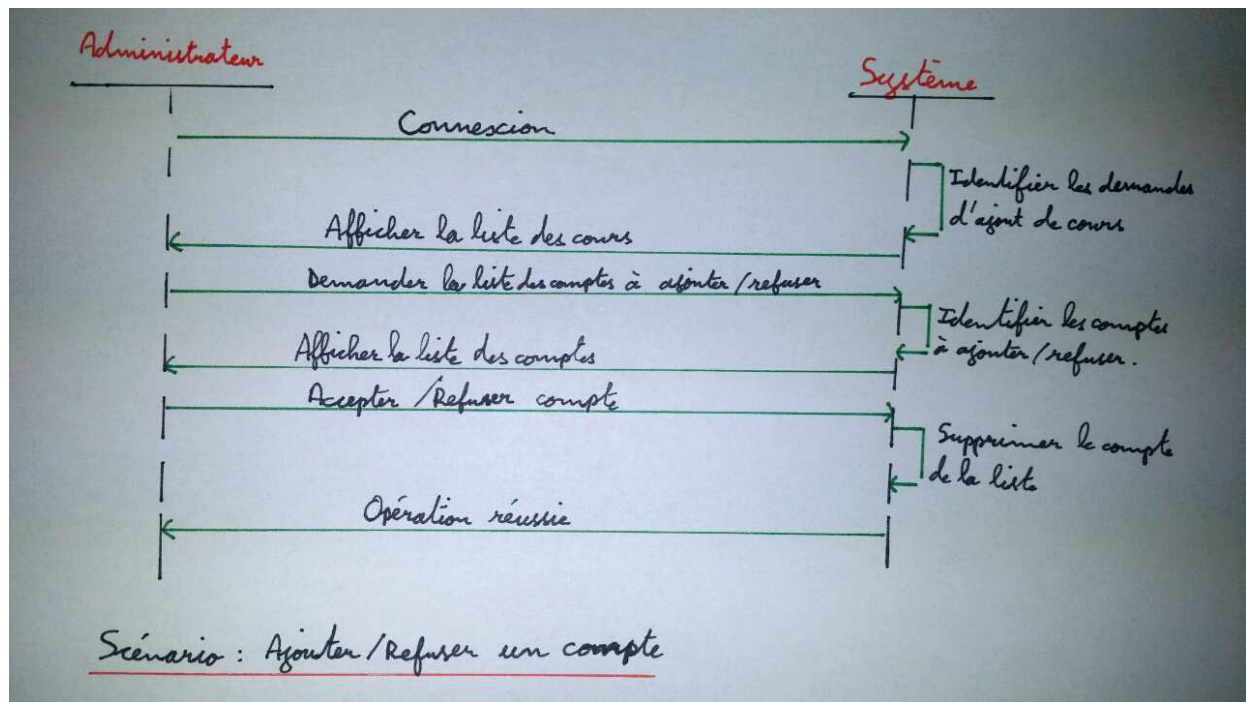 Administrateur
Système
Connexion
Identifier les demandes
d'ajout de cours
Afficher la liste des cours
Demander la liste des comptes à ajouter/refuser
Identifier les comptes
à ajouter/refuser.
Afficher la liste des comptes
Accepter/Refuser compte
Supprimer le compte
de la liste
Opération réussie
Scénario : Ajouter/Refuser un compte